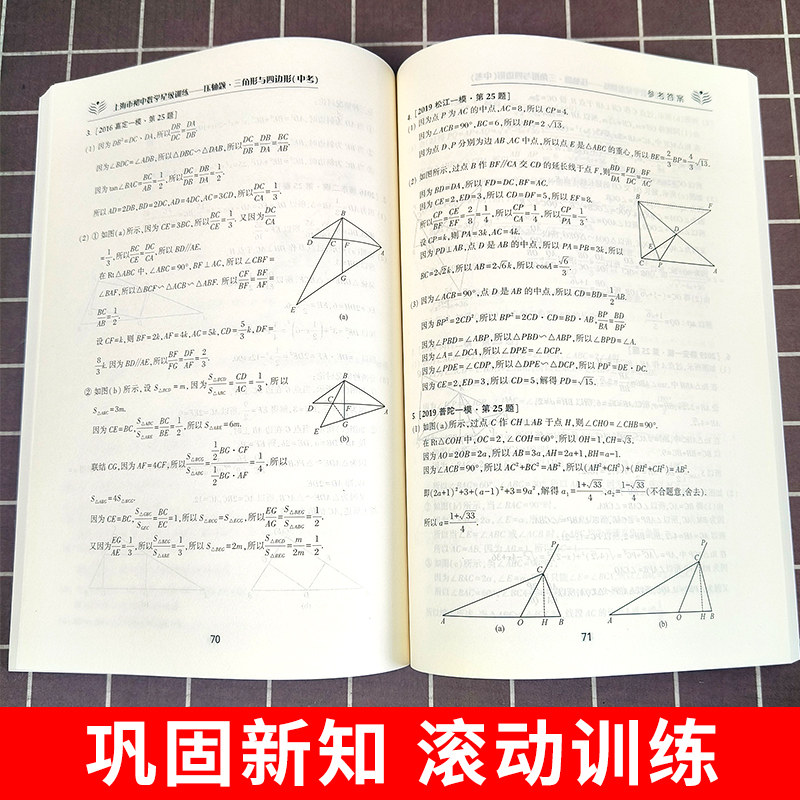 上海市初中数学星级训练——压轴题·三角形与四边形(中考)
3. [2016 嘉定一模·第 25 题]
(1) 因为 DB²=DC·DA,所以DB/DC=DA/DB.
因为∠BDC=∠ADB,所以△DBC∽△DAB,所以DC/DB=DB/DA=BC/AB.
因为 tan∠BAC=BC/AB=1/2,所以DC/DB=DB/DA=1/2,
所以 AD=2DB,BD=2DC,AD=4DC,AC=3CD,所以DC/CA=1/3.
(2) ① 如图(a)所示,因为 CE=3BC,所以BC/CE=1/3.又因为DC/CA
=1/3,所以BC/CE=DC/CA,所以 BD//AE.
在 Rt△ABC 中,∠ABC=90°,BF⊥AC,所以∠CBF=
∠BAF,所以△BCF∽△ACB∽△ABF,所以CF/BF=BF/AF=
BC/AB=1/2.
设 CF=k,则 BF=2k,AF=4k,AC=5k,CD=5/3k,DF=
8/3k.因为 BD//AE,所以BF/FG=DF/AF=2/3.
② 如图(b)所示,设 S△BCD=m,因为S△BCD/S△ABC=CD/AC=1/3,所以
S△ABC=3m.
因为 CE=BC,S△ABC/S△ABE=BC/BE=1/2,所以 S△ABE=6m.
联结 CG,因为 AF=4CF,所以S△BCG/S△ABG=1/2BG·CF/1/2BG·AF=1/4,所以
S△ABG=4S△BCG.
因为 CE=BC,S△BCG/S△EGC=BC/EC=1,所以 S△BCG=S△ECG,所以EG/AG=S△BEG/S△ABG=1/2,
又因为EG/AE=1/3,所以S△BEG/S△ABE=1/3,所以 S△BEG=2m,所以S△BCD/S△BEG=m/2m=1/2.
B
D
C
F
A
G
E
(a)
B
D
C
F
A
G
E
(b)
70
参考答案
4. [2019 松江一模·第 25 题]
(1) 因为点 P 为 AC 的中点,AC=8,所以 CP=4.
因为∠ACB=90°,BC=6,所以 BP=2√13.
因为点 D,P 分别为边 AB,AC 中点,所以点 E 是△ABC 的重心,所以 BE=2/3BP=4/3√13.
(2) 如图所示,过点 B 作 BF//CA 交 CD 的延长线于点 F,则BD/DA=FD/DC=BF/AC
因为 BD=DA,所以 FD=DC,BF=AC.
因为 CE=2,ED=3,所以 CD=DF=5,所以 EF=8.
所以CP/BF=CE/EF=2/8=1/4,所以CP/CA=1/4,所以CP/PA=1/3.
设 CP=k,则 PA=3k,AC=4k.
因为 PD⊥AB,点 D 是 AB 的中点,所以 PA=PB=3k,所以
BC=2√2k,所以 AB=2√6k,所以 cosA=√6/3.
B
F
D
E
C
P
A
(3) 因为∠ACB=90°,点 D 是 AB 的中点,所以 CD=BD=1/2AB.
因为 BP²=2CD²,所以 BP²=2CD·CD=BD·AB,BP/BA=BD/BP.
因为∠PBD=∠ABP,所以△PBD∽△ABP,所以∠BPD=∠A.
因为∠A=∠DCA,所以∠DPE=∠DCP.
因为∠PDE=∠CDP,所以△DPE∽△DCP,所以 PD²=DE·DC.
因为 CE=2,ED=3,所以 CD=5,解得 PD=√15.
5. [2019 普陀一模·第 25 题]
(1) 如图(a)所示,过点 C 作 CH⊥AB 于点 H,则∠CHO=∠CHB=90°.
在 Rt△COH 中,OC=2,∠COH=60°,所以 OH=1,CH=√3.
因为 AO=2OB=2a,所以 AB=3a,AH=2a+1,BH=a-1.
因为∠ACB=90°,所以 AC²+BC²=AB²,所以(AH²+CH²)+(BH²+CH²)=AB²,
即(2a+1)²+3+(a-1)²+3=9a²,解得 a₁=1+√33/4,a₂=1-√33/4(不合题意,舍去).
所以 a=1+√33/4.
P
C
A
O
H
B
(a)
P
C
A
O
H
B
(b)
71
巩固新知 滚动训练